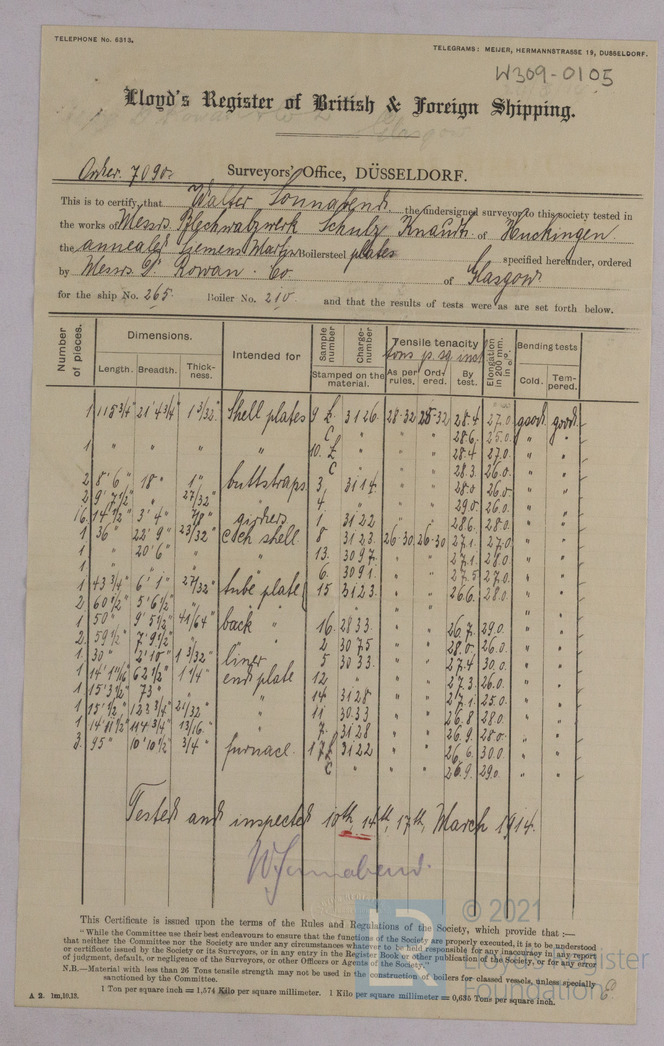 TELEPHONE No. 6313.
TELEGRAMS: MEIJER, HERMANNSTRASSE 19, DUSSELDORF.
W309-0105
Lloyd's Register of British & Foreign Shipping.
Surveyors' Office, DÜSSELDORF.
This is to certify that Walter Sonnabend the undersigned surveyor to this society tested in
the works of Messrs. Blechwalzwerk Schulz Knaudt of Huckingen
the annealed Siemens Martin Boilersteel plates specified hereunder, ordered
by Messrs D. Rowan & Co of Glasgow
for the ship No. 265. Boiler No. 210. and that the results of tests were as are set forth below.
Number of pieces. Dimensions. Intended for Sample number Charge-number Tensile tenacity tons p. sq. inch Elongation in 200 mm. in %. Bending tests
Length. Breadth. Thick-ness. Stamped on the material. As per rules. Ord-ered. By test. Cold. Tem-pered.
1 115 3/4" 21' 4 3/4" 1 3/32" Shell plates 9 3126 28-32 28-32 28.4 27.0 good good
C " " " 28.6 25.0 " "
1 " " " " 10. " " " 28.4 27.0 " "
C " " " 28.3 26.0 " "
2 8' 6" 18" 1" buttstraps 3 3114 " " 28.0 26.0 " "
2 9' 7 1/2" " 27/32" " 4 " " " 29.0 26.0 " "
16 14 1/2" 3' 4" 7/8" girders 1 3122 " " 28.6 28.0 " "
1 36" 22' 9" 23/32" cch shell 8 3123 26-30 26-30 27.1 27.0 " "
1 " 20' 6" " " 13. 3097 " " 27.1 28.0 " "
1 " " " " 6. 3091 " " 27.5 27.0 " "
1 43 3/4" 6' 1" 27/32" tube plate 15 3123 " " 26.6 28.0 " "
2 60 1/2" 5' 6 1/2" " "
1 50" 9' 5 1/2" 41/64" back " 16 2833 " " 26.7 29.0 " "
2 59 1/2" 7' 9 1/2" " " 2 3075 " " 28.0 26.0 " "
1 30" 2' 10" 1 3/32" liner 5 3033 " " 27.4 30.0 " "
1 14' 1 1/16" 62 1/2" 1 1/4" end plate 12 " " " 27.3 26.0 " "
1 15' 3 1/2" 73" " " 14 3128 " " 27.1 25.0 " "
1 15' 1/2" 123 3/4" 21/32" " 11 3033 " " 26.8 28.0 " "
1 14' 11 1/2" 114 3/4" 13/16" " 7 3128 " " 26.9 28.0 " "
3 95" 10' 10 1/2" 3/4" furnace 17 3122 " " 26.6 30.0 " "
C " " " 26.9 29.0 " "
Tested and inspected 10th, 14th, 17th, March 1914.
W. Sonnabend.
This Certificate is issued upon the terms of the Rules and Regulations of the Society, which provide that :—
"While the Committee use their best endeavours to ensure that the functions of the Society are properly executed, it is to be understood
that neither the Committee nor the Society are under any circumstances whatever to be held responsible for any inaccuracy in any report
or certificate issued by the Society or its Surveyors, or in any entry in the Register Book or other publication of the Society, or for any error
of judgment, default, or negligence of the Surveyors, or other Officers or Agents of the Society."
N.B.—Material with less than 26 Tons tensile strength may not be used in the construction of boilers for classed vessels, unless specially
sanctioned by the Committee.
1 Ton per square inch = 1,574 Kilo per square millimeter. 1 Kilo per square millimeter = 0,635 Tons per square inch.
A 2. 1m,10.13.
© 2021
LR
Lloyd's Register
Foundation